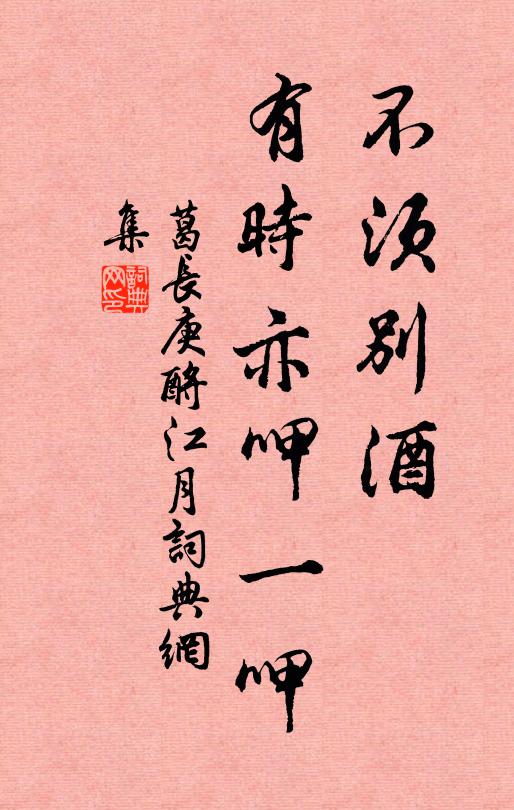 不須別酒
有時亦呷一呷
葛長庚酹江月詞典網
集
詞典網印